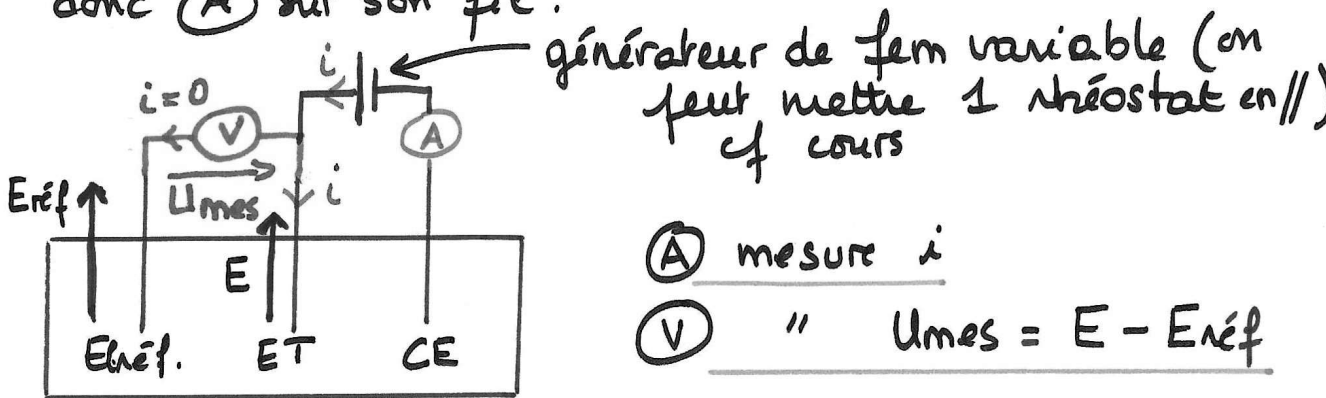 donc (A) sur son fil.
générateur de fem variable (on
peut mettre 1 rhéostat en //)
cf cours
i
i=0
V
A
Umes
i
Eréf
E
Elréf. ET CE
(A) mesure i
(V) " Umes = E - Eréf